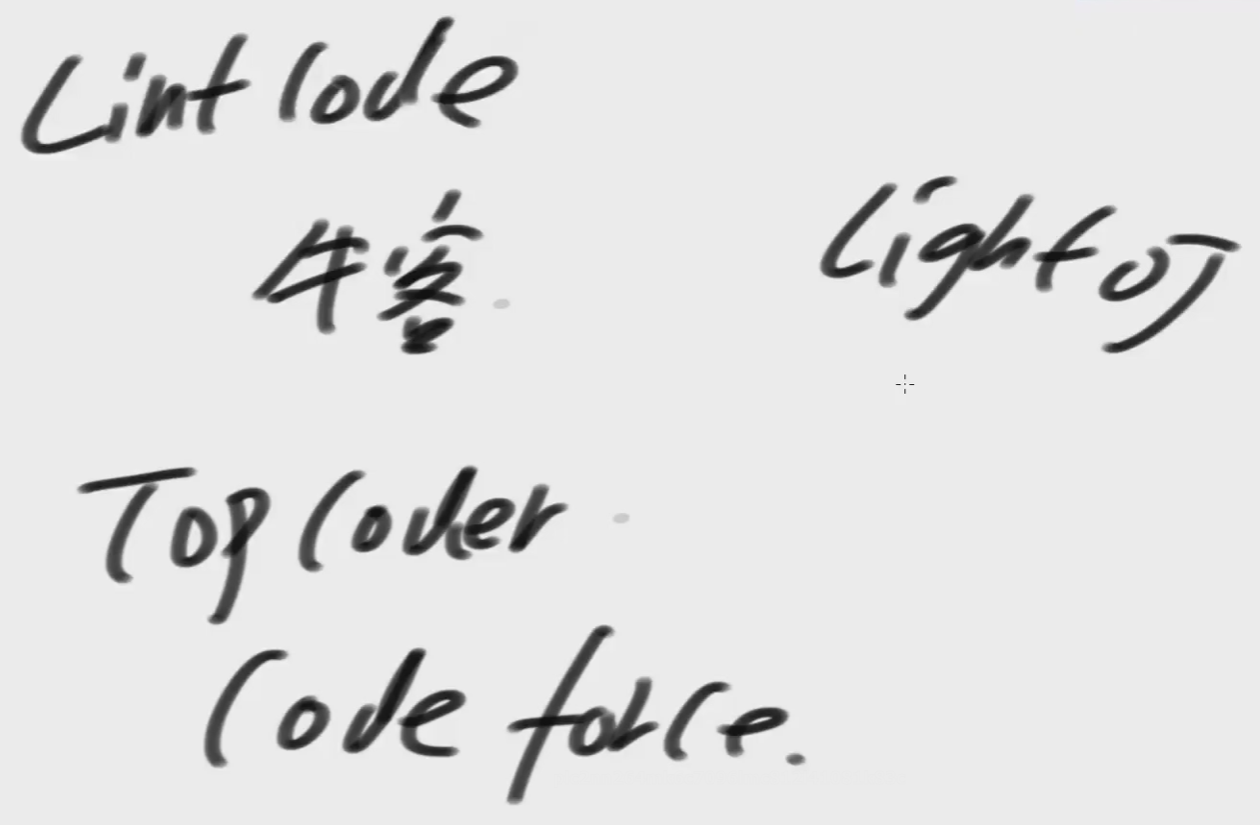 LintCode
牛客
LightOJ
TopCoder
Codeforce.